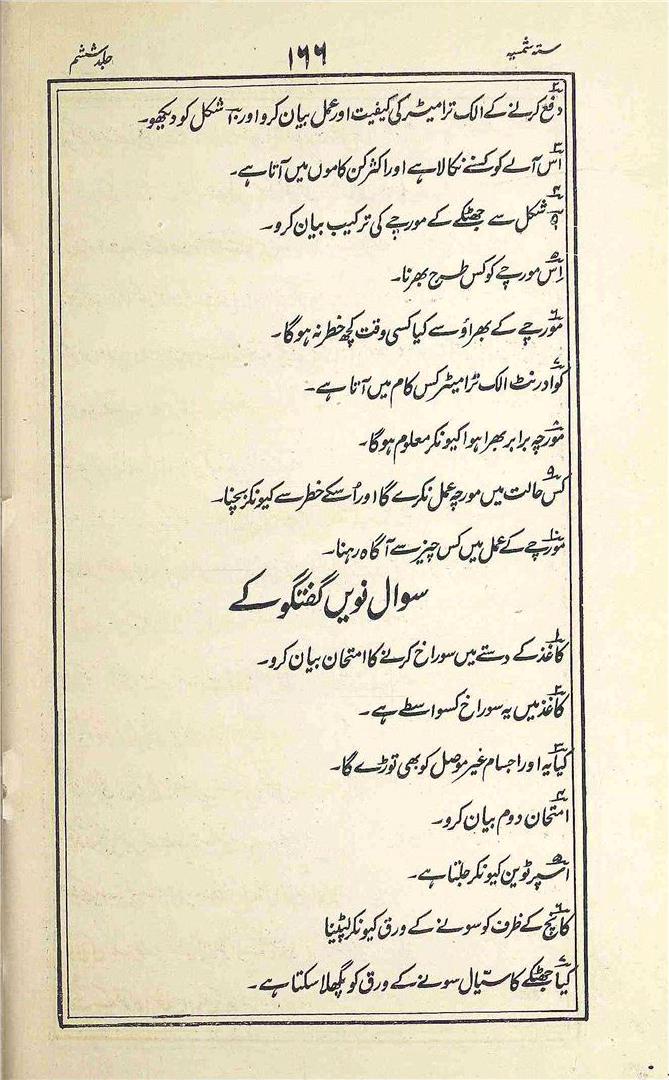 ستہ شمسیہ ۱۶۶ جلد ششم
۲ دفع کرنے کے الک ترامیٹر کی کیفیت اور عمل بیان کرو اور شکل کو دیکھو۔
۳ اس آلے کو کسنے نکالا ہے اور اکثر کن کاموں میں آتا ہے۔
۴ شکل سے جھٹکے کے مورچے کی ترکیب بیان کرو۔
۵ اِس مورچے کو کس طرح بھرنا۔
۶ مورچے کے بھراؤ سے کیا کسی وقت کچھ خطر نہ ہوگا۔
۷ کوادرنٹ الک ٹرامیٹر کس کام میں آتا ہے۔
۸ مورچہ برابر بھرا ہوا کیونکر معلوم ہوگا۔
۹ کس حالت میں مورچہ عمل نکرے گا اور اُسکے خطر سے کیونکر بچنا۔
۱۰ مورچے کے عمل میں کس چیز سے آگاہ رہنا۔
سوال نویں گفتگو کے
۱ کاغذ کے دستے میں سوراخ کرنے کا امتحان بیان کرو۔
۲ کاغذ میں یہ سوراخ کسواسطے ہے۔
۳ کیا یہ اور اجسام غیر موصل کو بھی توڑے گا۔
۴ امتحان دوم بیان کرو۔
۵ اسپرٹوین کیونکر جلتا ہے۔
۶ کانچ کے ظرف کو سونے کے ورق کیونکر لپٹینا
۷ کیا جھٹکے کا سیّال سونے کے ورق کو پگھلا سکتا ہے۔